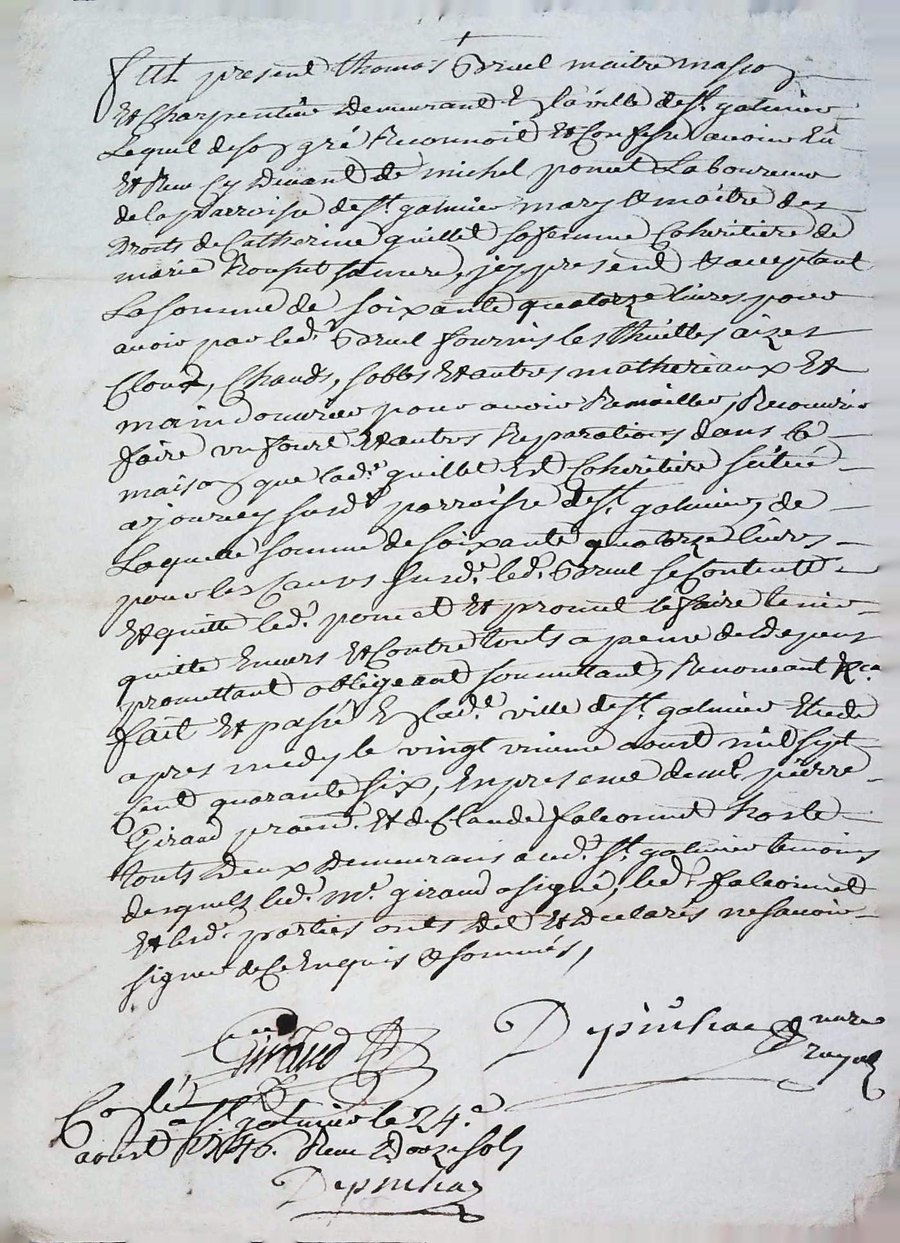 Fut present thomas Gruel maitre masson
Et Charpentier Demeurant En la ville de St. galmier
Lequel de son gré Reconnoit Et Confesse avoir Eu
Et Receu Cy Devant de michel poncet Laboureur
de la parroisse de St. galmier mary & maitre des
Droits de Catherine guillet sa femme Coheritiere de
marie sa mere, jcy present & acceptant
La somme de soixante quatorze livres pour
avoir par led. Gruel fournis les Thuilles aizes
Cloux, Chaud, sables Et autres matheriaux Et
main douvrier pour avoir Remailler, Recouvrir
faire un fourt Et autres Reparations dans la
maison que lad. guillet Est Coheritiere scituée
a jourcey susd. parroisse de St. galmier, de
Laquelle somme de soixante quatorze livres
pour les Causes susd. led. Gruel se Contente
Et quitte led. poncet Et promet le faire tenir
quitte Envers Et Contre touts a peine de Depens
promettant obligeant soumettant, Renonceant &ca.
fait Et passé En lad. ville de St. galmier Etude
apres midy le vingt unieme aoust mil sept
Cent quarante six, En presence de me. pierre
Giraud Et de Claude falconnet hoste
touts Deux Demeurans aud. St. galmier temoins
desquels led. Mr. giraud a signé, led. falconnet
Et lesd. parties onts Dit Et Declarés ne savoir
signer de Ce Enquis & sommés,
Giraud
Depinhac nore
royal
Conlé a St. galmier le 24e
aoust 1746. Receu Douze sols
Depinhac